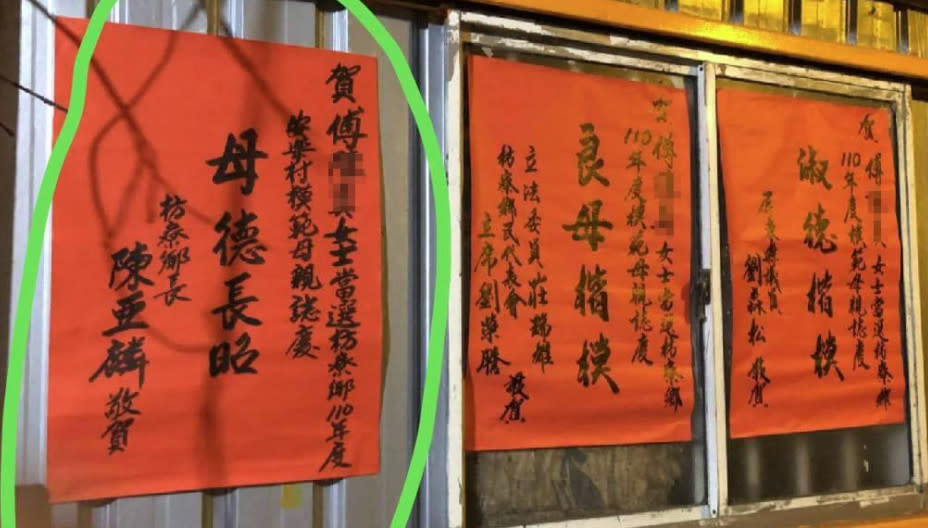 賀傅女士當選枋寮鄉110年度
安樂村模範母親誌慶
母德長昭
枋寮鄉長
陳亞麟敬賀
賀傅女士當選枋寮鄉
110年度模範母親誌慶
良母楷模
立法委員莊瑞雄
枋寮鄉民代表會主席劉榮勝
敬賀
賀傅女士當選枋寮鄉
110年度模範母親誌慶
淑德楷模
屏東縣議員
劉淼松敬賀